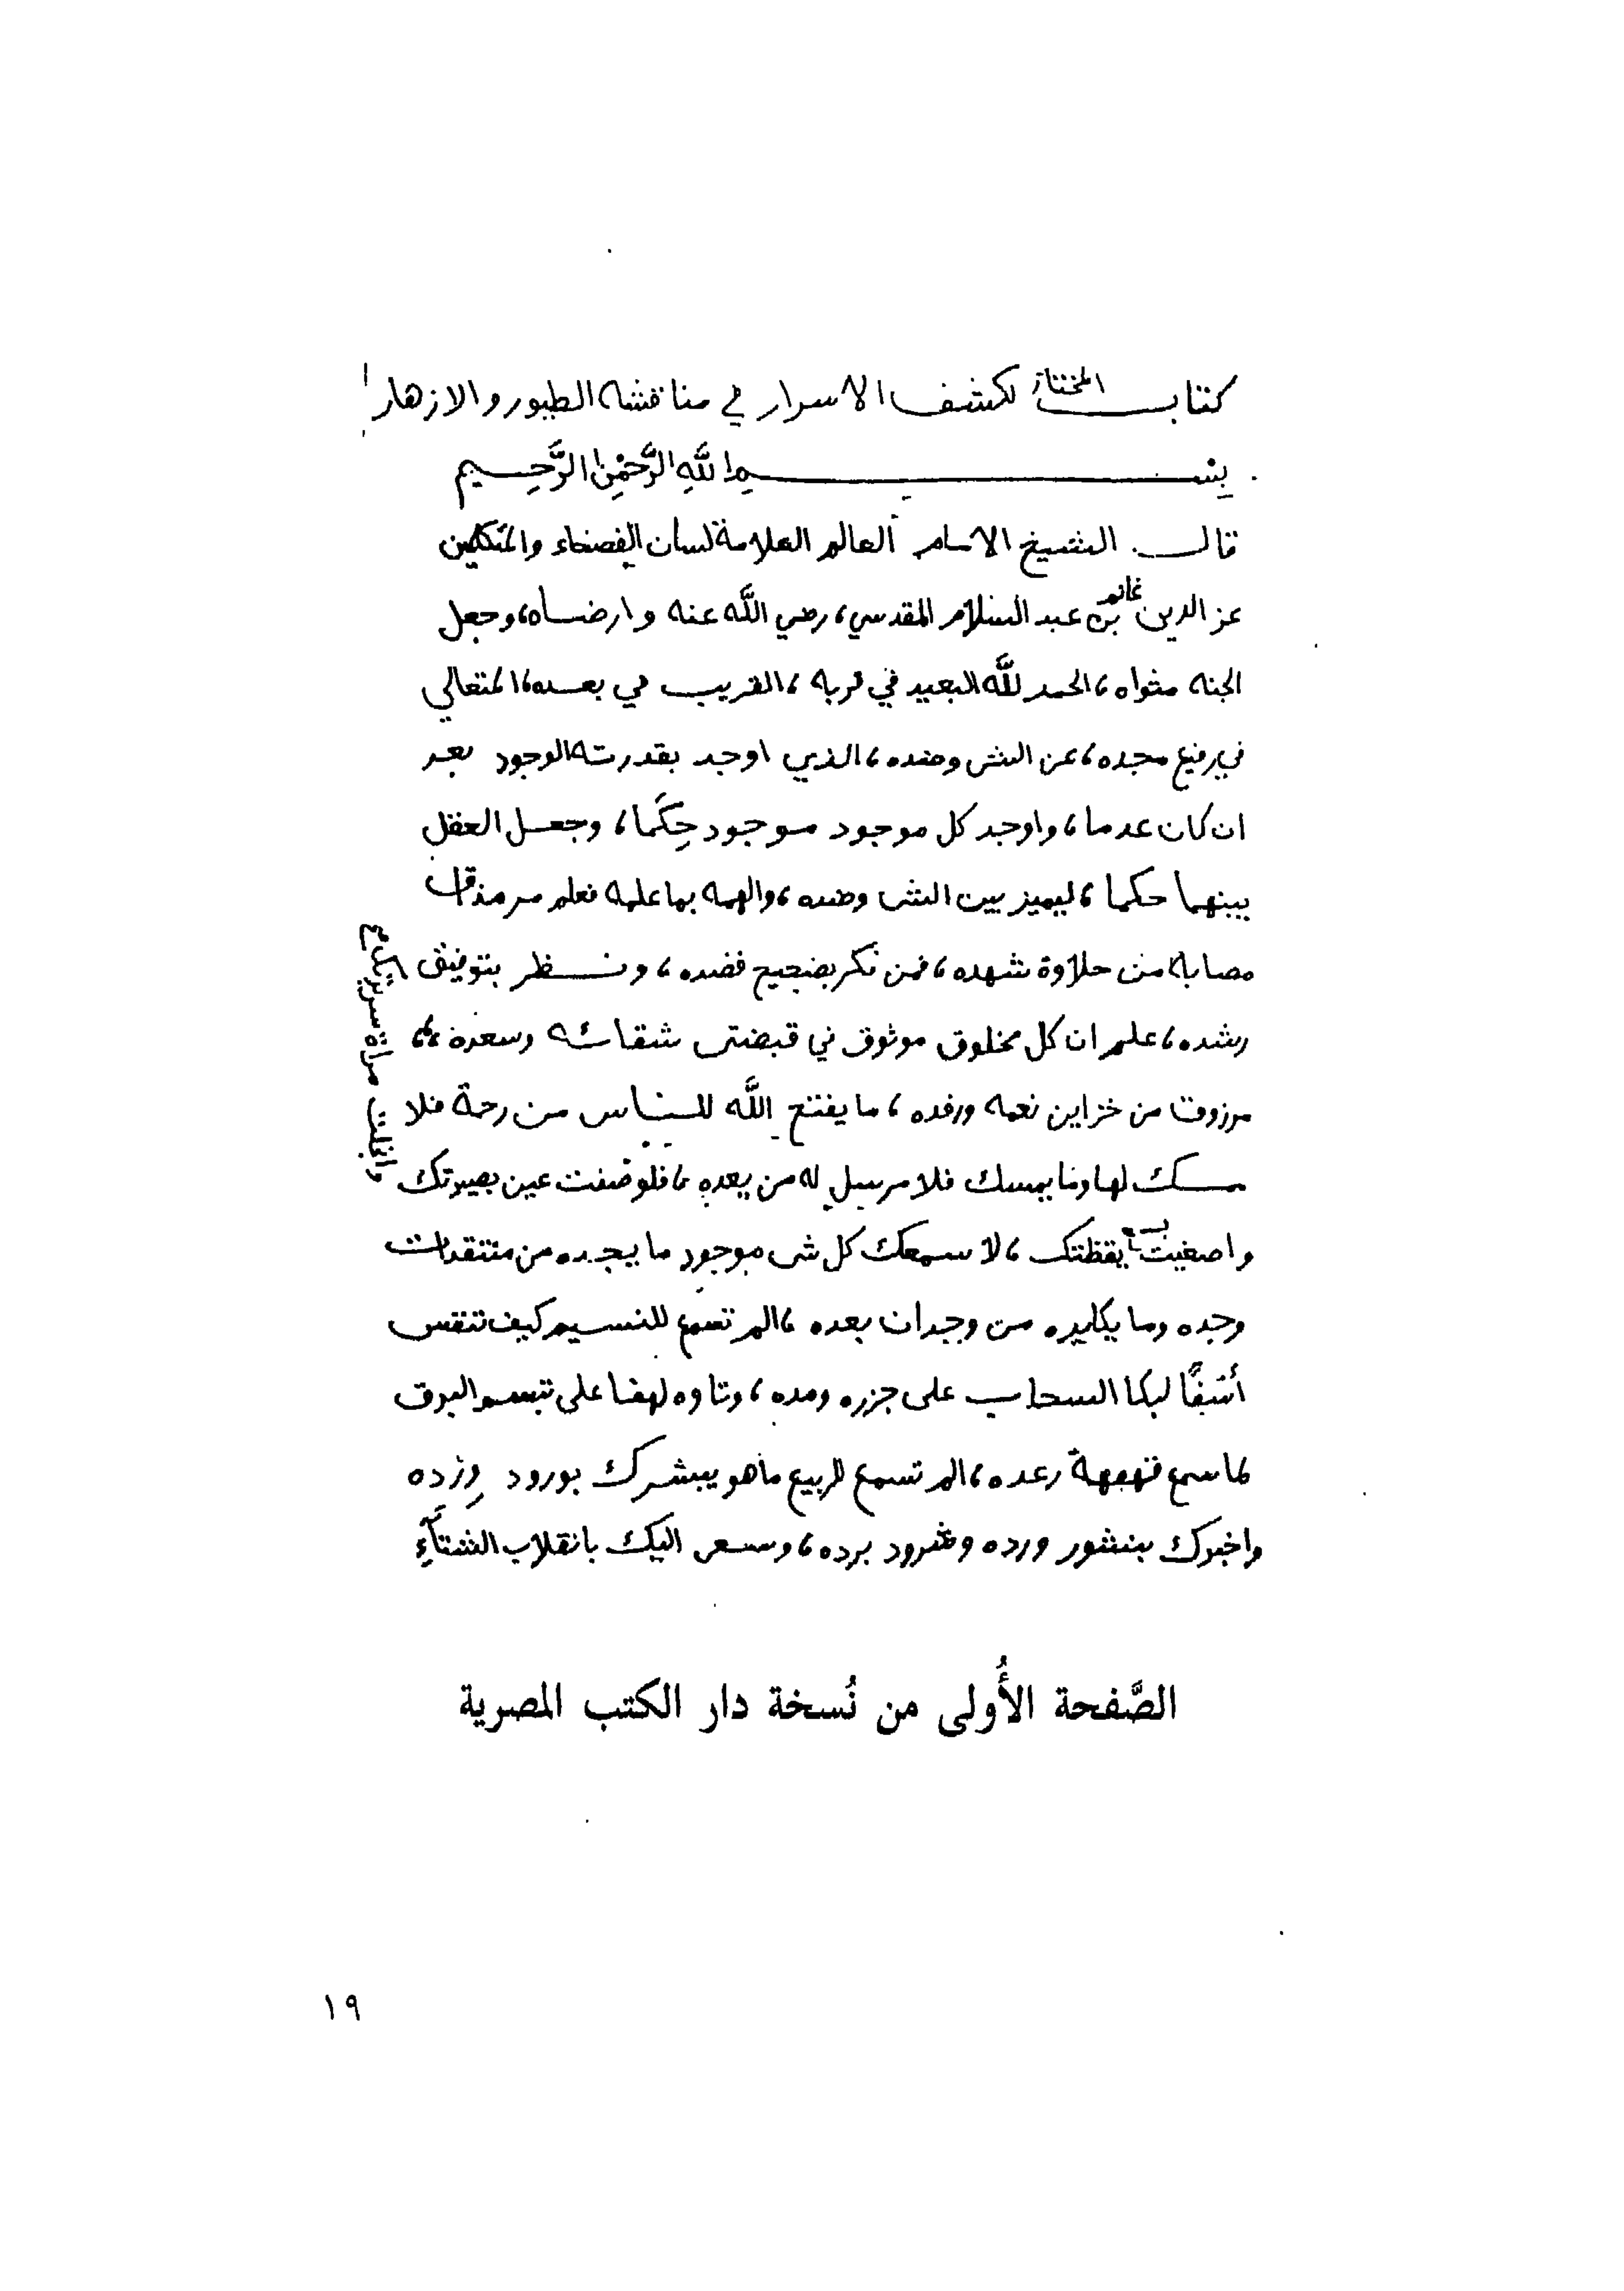 كتاب المختار لكشف الاسرار في مناقشه الطيور والازهار
بسم الله الرَّحْمٰنِ الرَّحِيم
قال الشيخ الامام العالم العلامة لسان الفصحاء والمتكلمين
عز الدين بن غانم عبد السلام المقدسي، رضي الله عنه وارضاه، وجعل
الجنه مثواه، الحمد لله البعيد في قربه، القريب في بعده، المتعالي
في رفيع مجده، عن الشي وضده، الذي اوجد بقدرته الوجود بعد
ان كان عدما، واوجد كل موجود موجود حِكَما، وجعل العقل
بينهما حكما، ليميز بين الشي وضده، والهمه بما علمه فعلم مر مذاق
مصابه من حلاوة شهده، فمن فكر بصحيح قصده، ونظر بتوفيق
رشده، علم ان كل مخلوق موثوق في قبضتي شقائه وسعده،،
مرزوق من خزاين نعمه ورفده، ما يفتح الله للناس من رحمة فلا
مسك لها وما يمسك فلا مرسل له من بعده، فلو صفت عين بصيرتك
وانجلت مرآة سريرتك
واصغيت بسمع يقظتك، لا سمعك كل شي موجود ما يجده من منتقدات
وجده وما يكابده من وجدان بعده، الم تسمع للنسيم كيف تنفس
أسِفًا لبكا السحاب على جزره ومده، وتاوه لهفا على تبسم البرق
لما سمع قهقهة رعده، الم تسمع للربيع ما هو يبشرك بورود وِرْده
واخبرك بنشور ورده وشرود برده، وسعى اليك بانقلاب الشتآءِ
الصَّفحة الأُولى من نُسخة دار الكتب المصرية
١٩